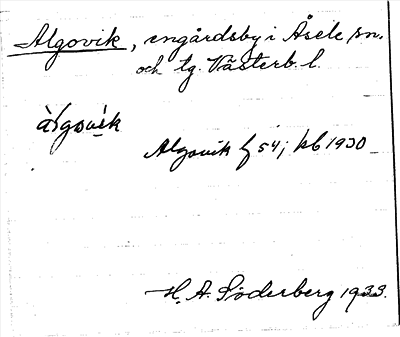 Algovik, engårdsby i Åsele sn.
och tg. Västerb. l.
àlgovik
Algovik f 54; kb 1930
H. A. Söderberg 1933.